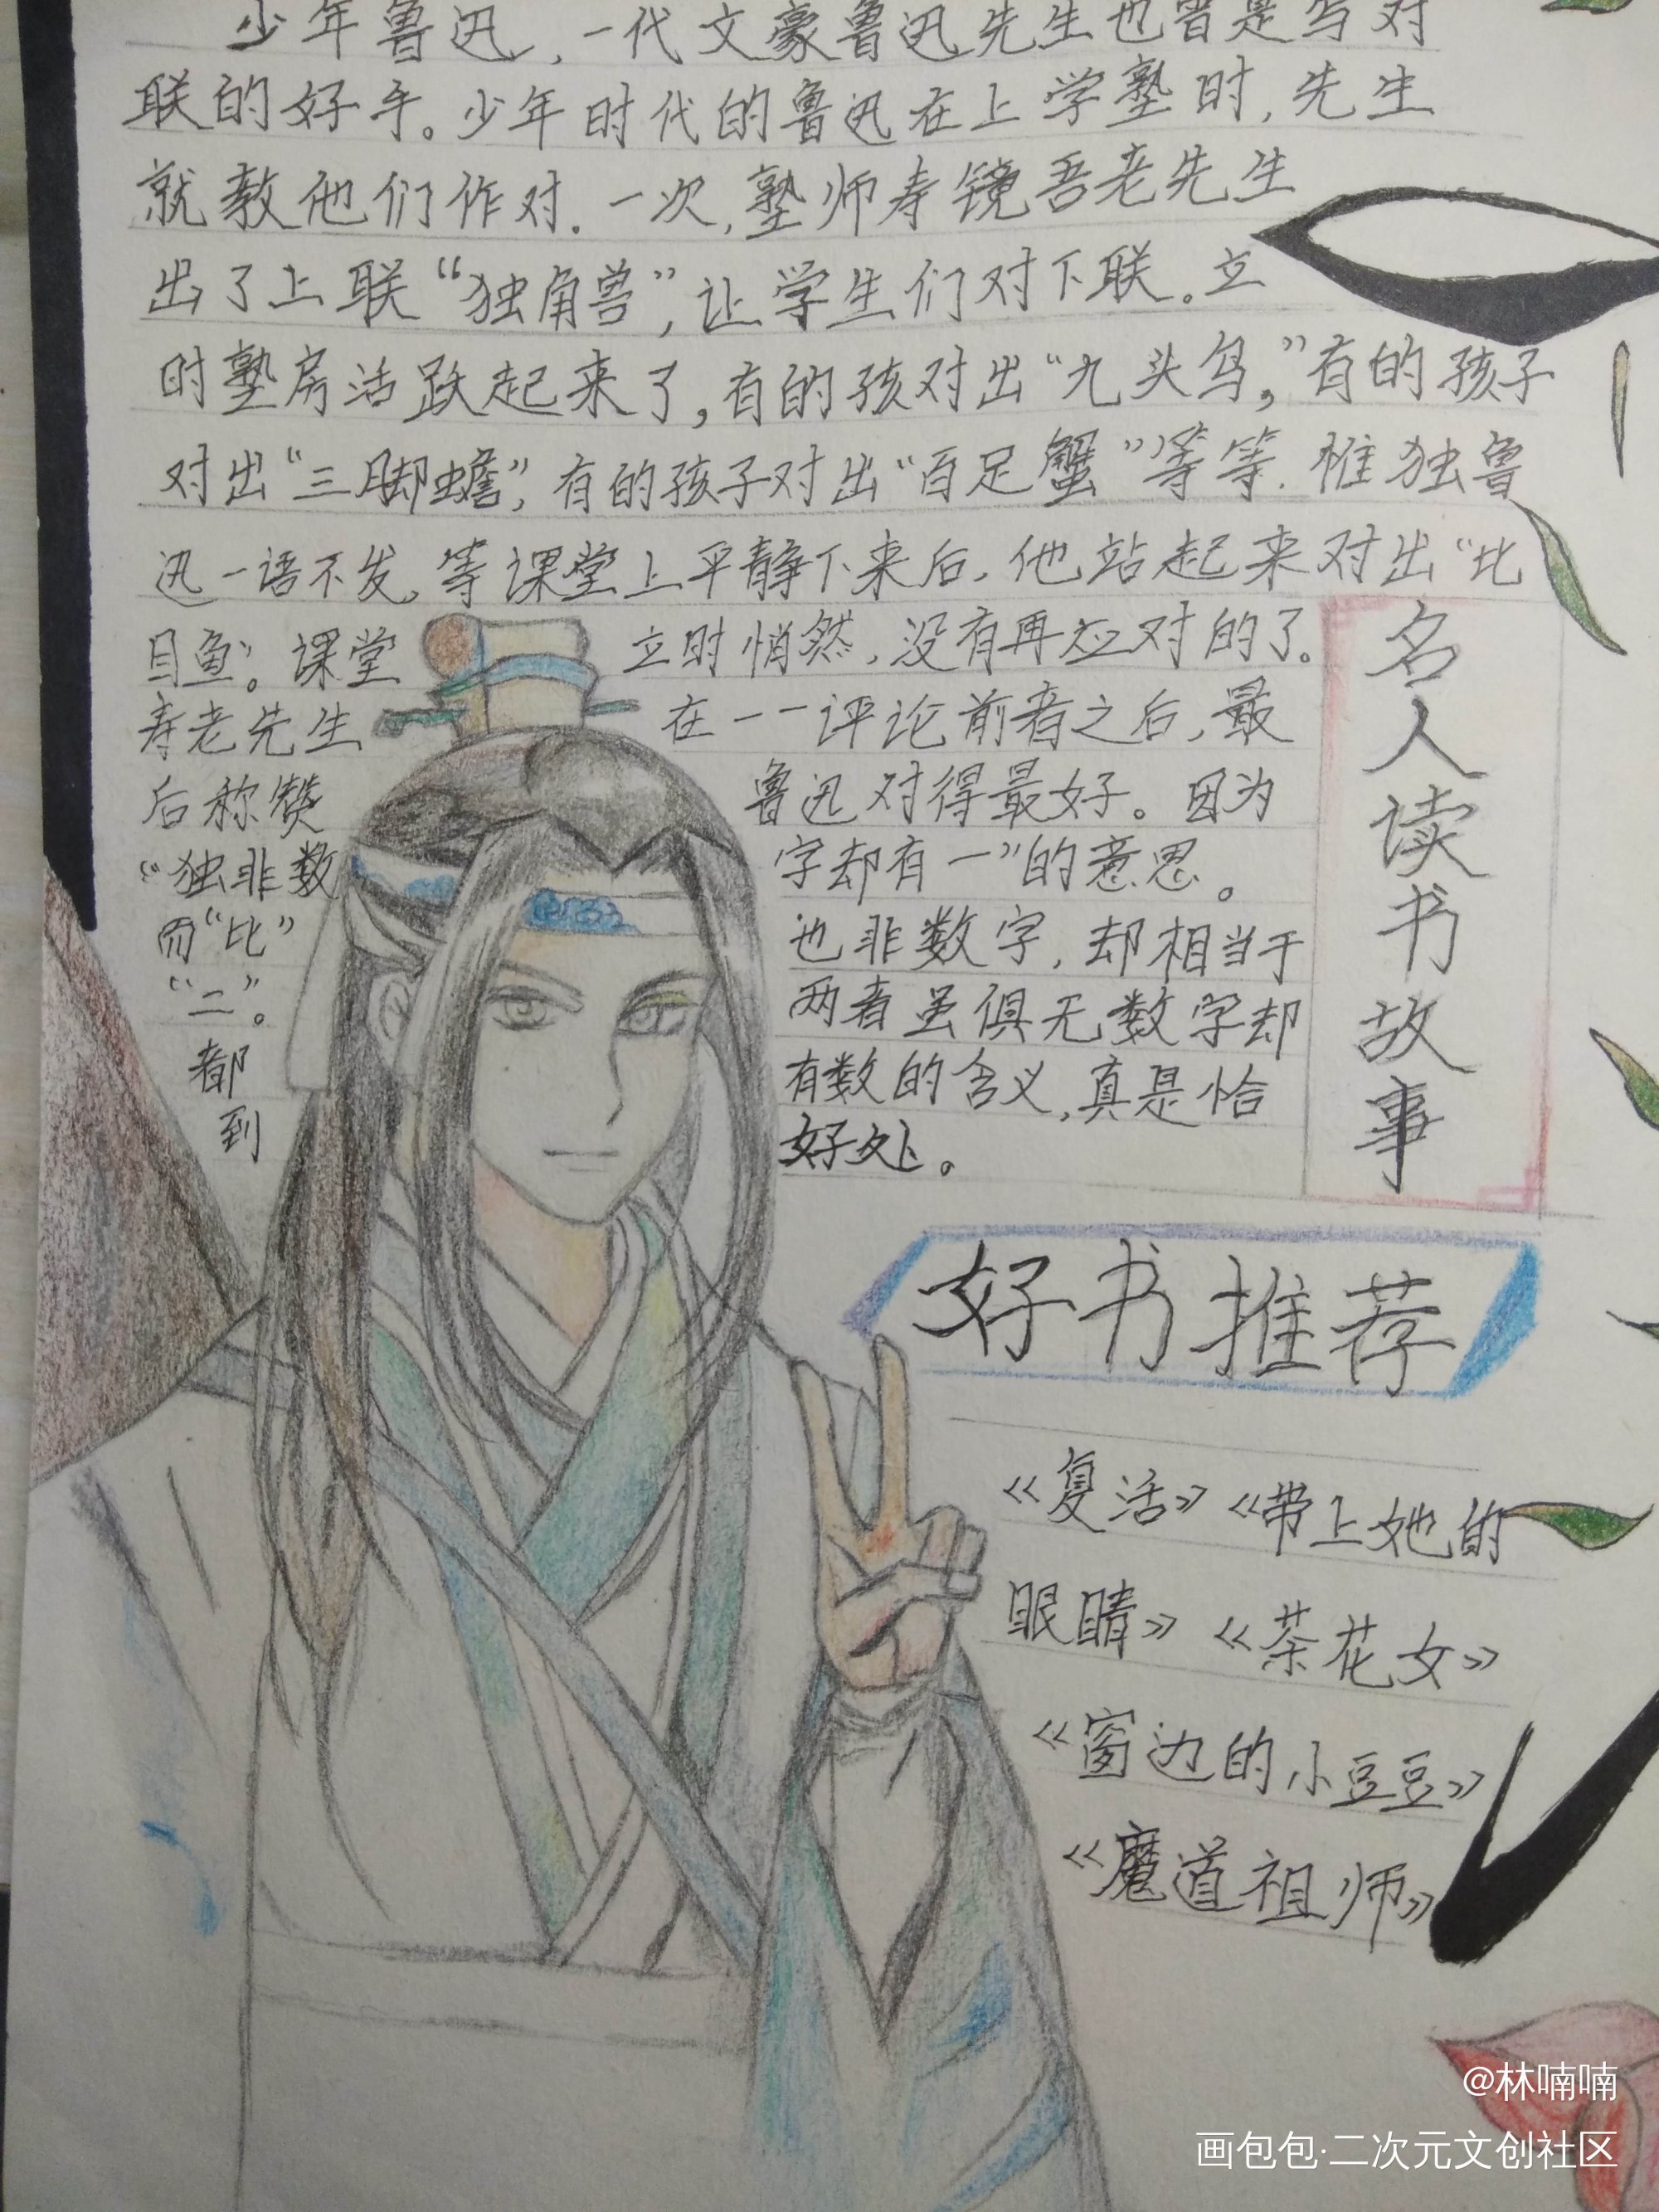 少年鲁迅,一代文豪鲁迅先生也曾是写对
联的好手。少年时代的鲁迅在上学塾时,先生
就教他们作对.一次,塾师寿镜吾老先生
出了上联“独角兽”,让学生们对下联。立
时塾房活跃起来了,有的孩对出“九头鸟,”有的孩子
对出“三脚蟾”,有的孩子对出“百足蟹”等等.惟独鲁
迅一语不发,等课堂上平静下来后,他站起来对出“比
目鱼”。课堂立时悄然,没有再应对的了。
寿老先生在一一评论前者之后,最
后称赞鲁迅对得最好。因为
“独非数字却有一”的意思。
而“比”也非数字,却相当于
“二”。两者虽俱无数字却
都有数的含义,真是恰
到好处。
名人读书故事
好书推荐
《复活》《带上她的
眼睛》《茶花女》
《窗边的小豆豆》
《魔道祖师》
@林喃喃
画包包·二次元文创社区